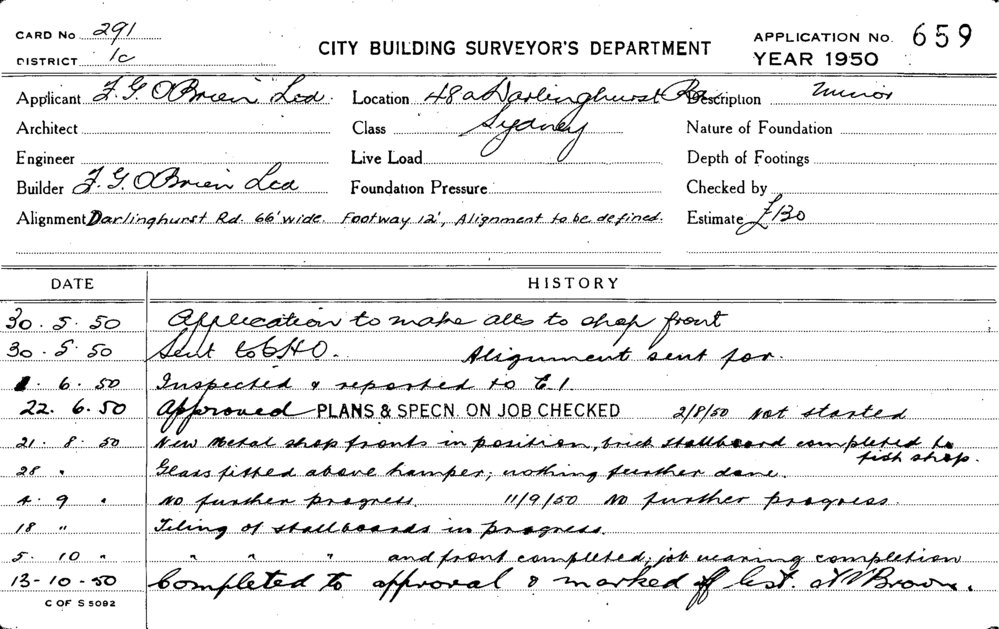 CARD No 291
DISTRICT 1c
CITY BUILDING SURVEYOR'S DEPARTMENT
APPLICATION No. 659
YEAR 1950
Applicant F. G. O'Brien Ltd. Location 48a Darlinghurst Rd Description Minor
Architect Class Sydney Nature of Foundation
Engineer Live Load Depth of Footings
Builder F. G. O'Brien Ltd Foundation Pressure Checked by
Alignment Darlinghurst Rd. 66' wide. Footway 12', Alignment to be defined. Estimate £130
DATE HISTORY
30.5.50 Application to make alts to shop front
30.5.50 Sent to CHO. Alignment sent for.
1.6.50 Inspected & reported to E.1.
22.6.50 Approved PLANS & SPECN. ON JOB CHECKED 2/8/50 Not started
21.8.50 New metal shop fronts in position, brick stallboard completed to
fish shop.
28 " Glass fitted above hamper; nothing further done.
4.9 " No further progress. 11/9/50 No further progress.
18 " Tiling of stallboards in progress.
5.10 " " " " and front completed; job nearing completion
13-10-50 Completed to approval & marked off list. Brown.
C OF S 5092